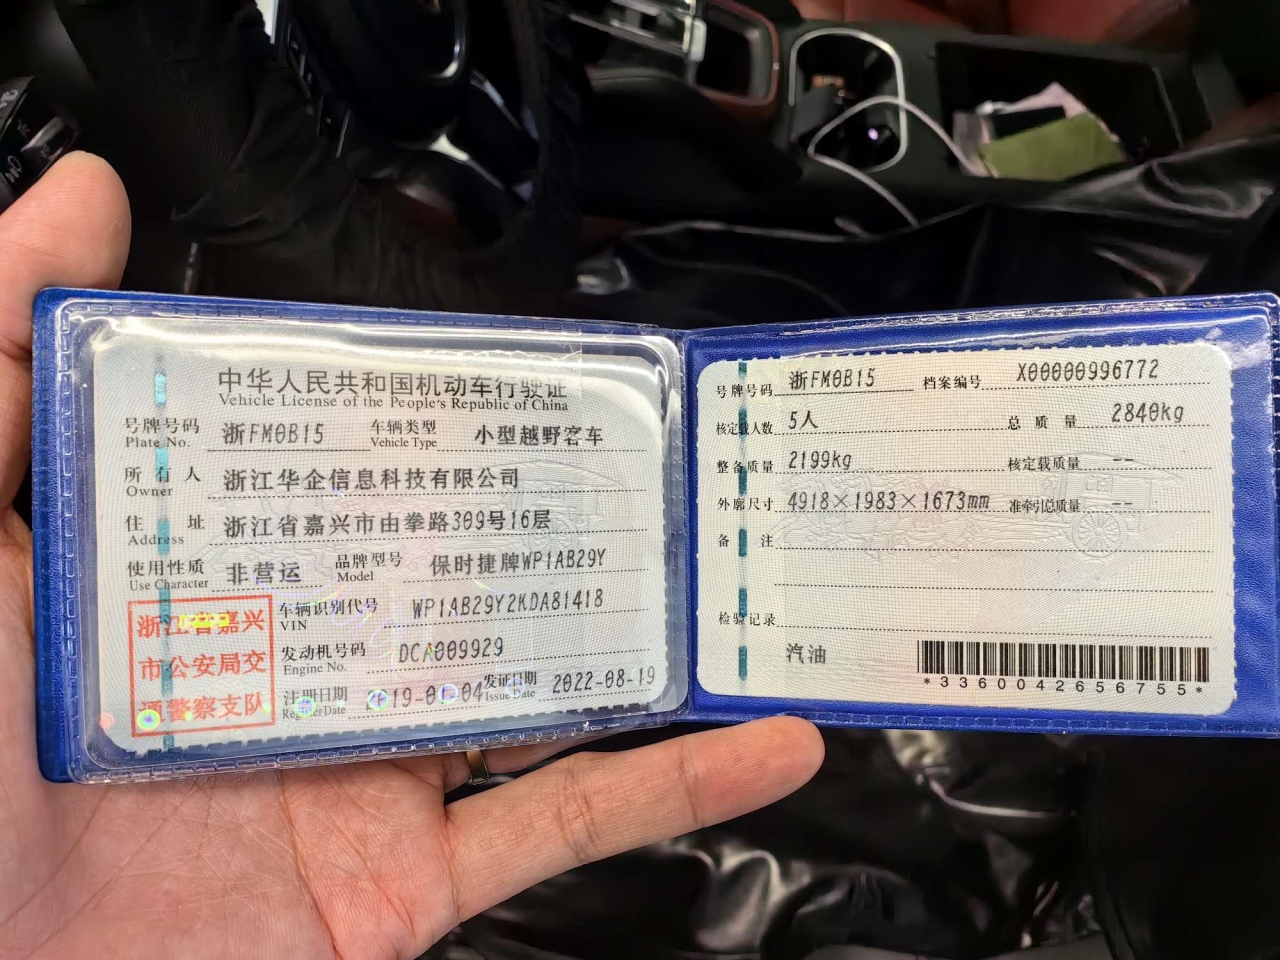 中华人民共和国机动车行驶证
Vehicle License of the People's Republic of China
号牌号码 浙FM0B15 车辆类型 小型越野客车
Plate No. Vehicle Type
所有人 浙江华企信息科技有限公司
Owner
住址 浙江省嘉兴市由拳路309号16层
Address
使用性质 非营运 品牌型号 保时捷牌WP1AB29Y
Use Character Model
浙江省嘉兴
市公安局交
通警察支队
车辆识别代号 WP1AB29Y2KDA81418
VIN
发动机号码 DCA009929
Engine No.
注册日期 2019-01-04 发证日期 2022-08-19
Register Date Issue Date
号牌号码 浙FM0B15 档案编号 X00000996772
核定载人数 5人 总质量 2840kg
整备质量 2199kg 核定载质量 --
外廓尺寸 4918×1983×1673mm 准牵引总质量 --
备注
检验记录
汽油
*3360042656755*